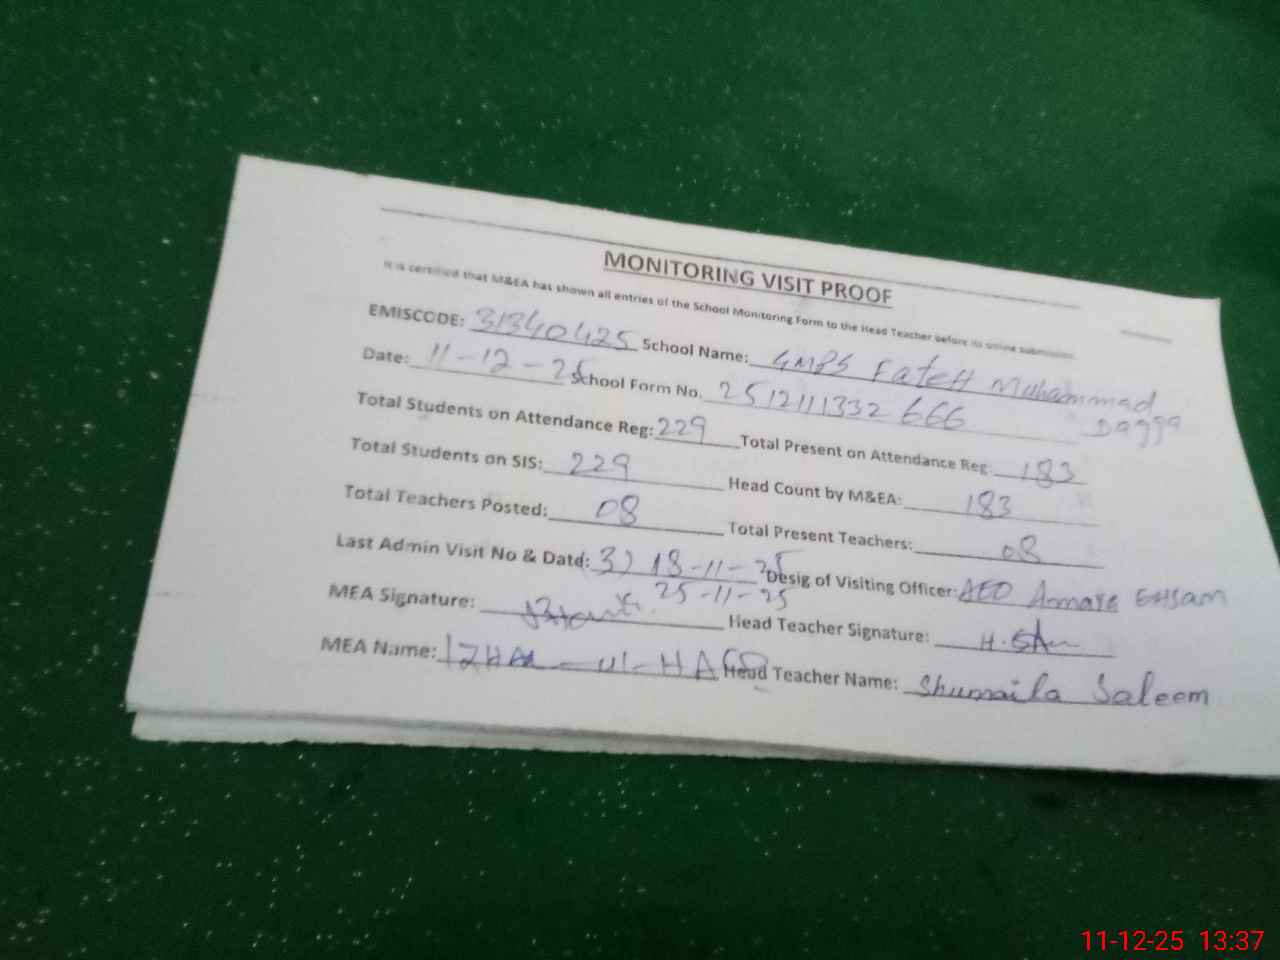 MONITORING VISIT PROOF
It is certified that M&EA has shown all entries of the School Monitoring Form to the Head Teacher before its online submission.
EMISCODE: 31340425 School Name: GMPS Fateh Muhammad
Dagga
Date: 11-12-25 School Form No. 2512111332666
Total Students on Attendance Reg: 229 Total Present on Attendance Reg: 183
Total Students on SIS: 229 Head Count by M&EA: 183
Total Teachers Posted: 08 Total Present Teachers: 08
Last Admin Visit No & Date: 3) 18-11-25 Desig of Visiting Officer: AEO Ehsam
25-11-25
MEA Signature: Head Teacher Signature:
MEA Name: IZHAR-ul-HAQ Head Teacher Name: Shumaila Saleem
11-12-25 13:37